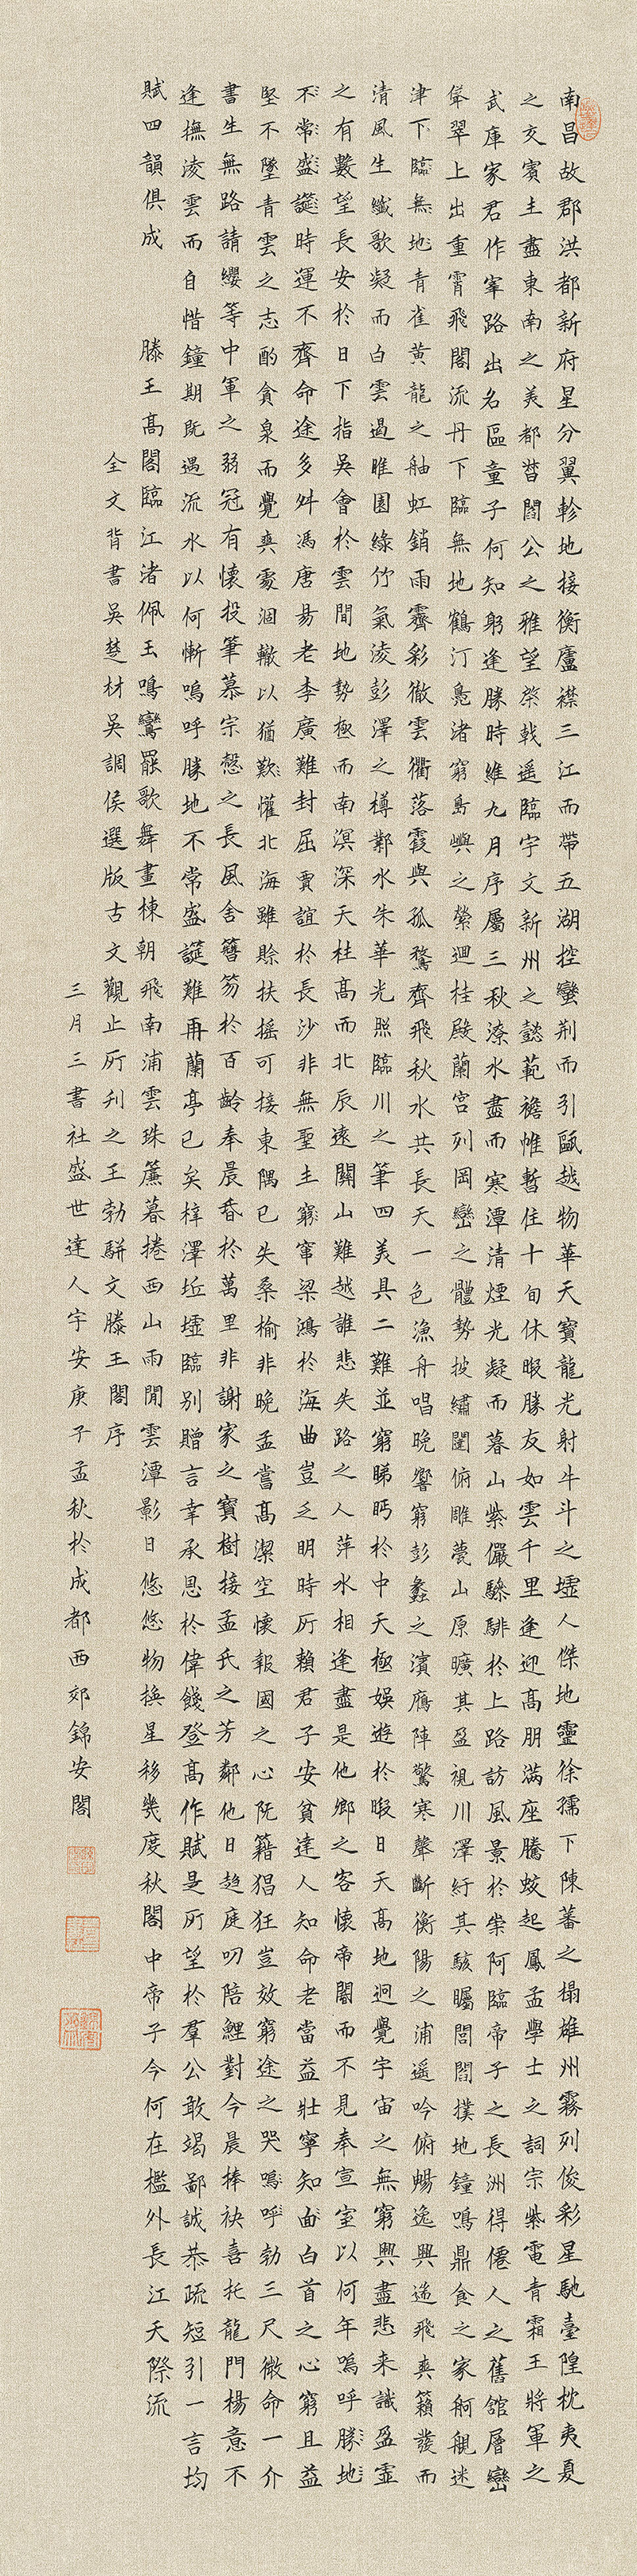 南昌故郡洪都新府星分翼軫地接衡廬襟三江而帶五湖控蠻荊而引甌越物華天寶龍光射牛斗之墟人傑地靈徐孺下陳蕃之榻雄州霧列俊彩星馳臺隍枕夷夏
之交賓主盡東南之美都督閻公之雅望棨戟遥臨宇文新州之懿範襜帷暫住十旬休暇勝友如雲千里逢迎高朋滿座騰蛟起鳳孟學士之詞宗紫電青霜王將軍之
武庫家君作宰路出名區童子何知躬逢勝時維九月序屬三秋潦水盡而寒潭清煙光凝而暮山紫儼驂騑於上路訪風景於崇阿臨帝子之長洲得僊人之舊館層巒
聳翠上出重霄飛閣流丹下臨無地鶴汀鳧渚窮島嶼之縈迴桂殿蘭宮列岡巒之體勢披繡闥俯雕甍山原曠其盈視川澤紆其駭矚閭閻撲地鐘鳴鼎食之家舸艦迷
津下臨無地青雀黃龍之舳虹銷雨霽彩徹雲衢落霞與孤鶩齊飛秋水共長天一色漁舟唱晚響窮彭蠡之濱鴈陣驚寒聲斷衡陽之浦遥吟俯暢逸興遄飛爽籟發而
清風生纖歌凝而白雲遏睢園綠竹氣凌彭澤之樽鄴水朱華光照臨川之筆四美具二難並窮睇眄於中天極娛遊於暇日天高地迥覺宇宙之無窮興盡悲来識盈虛
之有數望長安於日下指吳會於雲間地勢極而南溟深天柱高而北辰遠關山難越誰悲失路之人萍水相逢盡是他鄉之客懷帝閽而不見奉宣室以何年嗚呼勝地
不常盛筵時運不齊命途多舛馮唐易老李廣難封屈賈誼於長沙非無聖主窮竄梁鴻於海曲豈乏明時所賴君子安貧達人知命老當益壯寧知面白首之心窮且益
堅不墜青雲之志酌貪泉而覺爽處涸轍以猶歎懽北海雖賒扶搖可接東隅已失桑榆非晚孟嘗高潔空懷報國之心阮籍猖狂豈效窮途之哭嗚呼勃三尺微命一介
書生無路請纓等中軍之弱冠有懷投筆慕宗愨之長風舍簪笏於百齡奉晨昏於萬里非謝家之寶樹接孟氏之芳鄰他日趨庭叨陪鯉對今晨捧袂喜托龍門楊意不
逢撫凌雲而自惜鐘期既遇流水以何慚嗚呼勝地不常盛筵難再蘭亭已矣梓澤坵墟臨別贈言幸承恩於偉餞登高作賦是所望於羣公敢竭鄙誠恭疏短引一言均
賦四韻俱成 滕王高閣臨江渚佩玉鳴鸞罷歌舞畫棟朝飛南浦雲珠簾暮捲西山雨閒雲潭影日悠悠物換星移幾度秋閣中帝子今何在檻外長江天際流
全文背書吳楚材吳調侯選版古文觀止所刋之王勃駢文滕王閣序
三月三書社盛世達人宇安庚子孟秋於成都西郊錦安閣